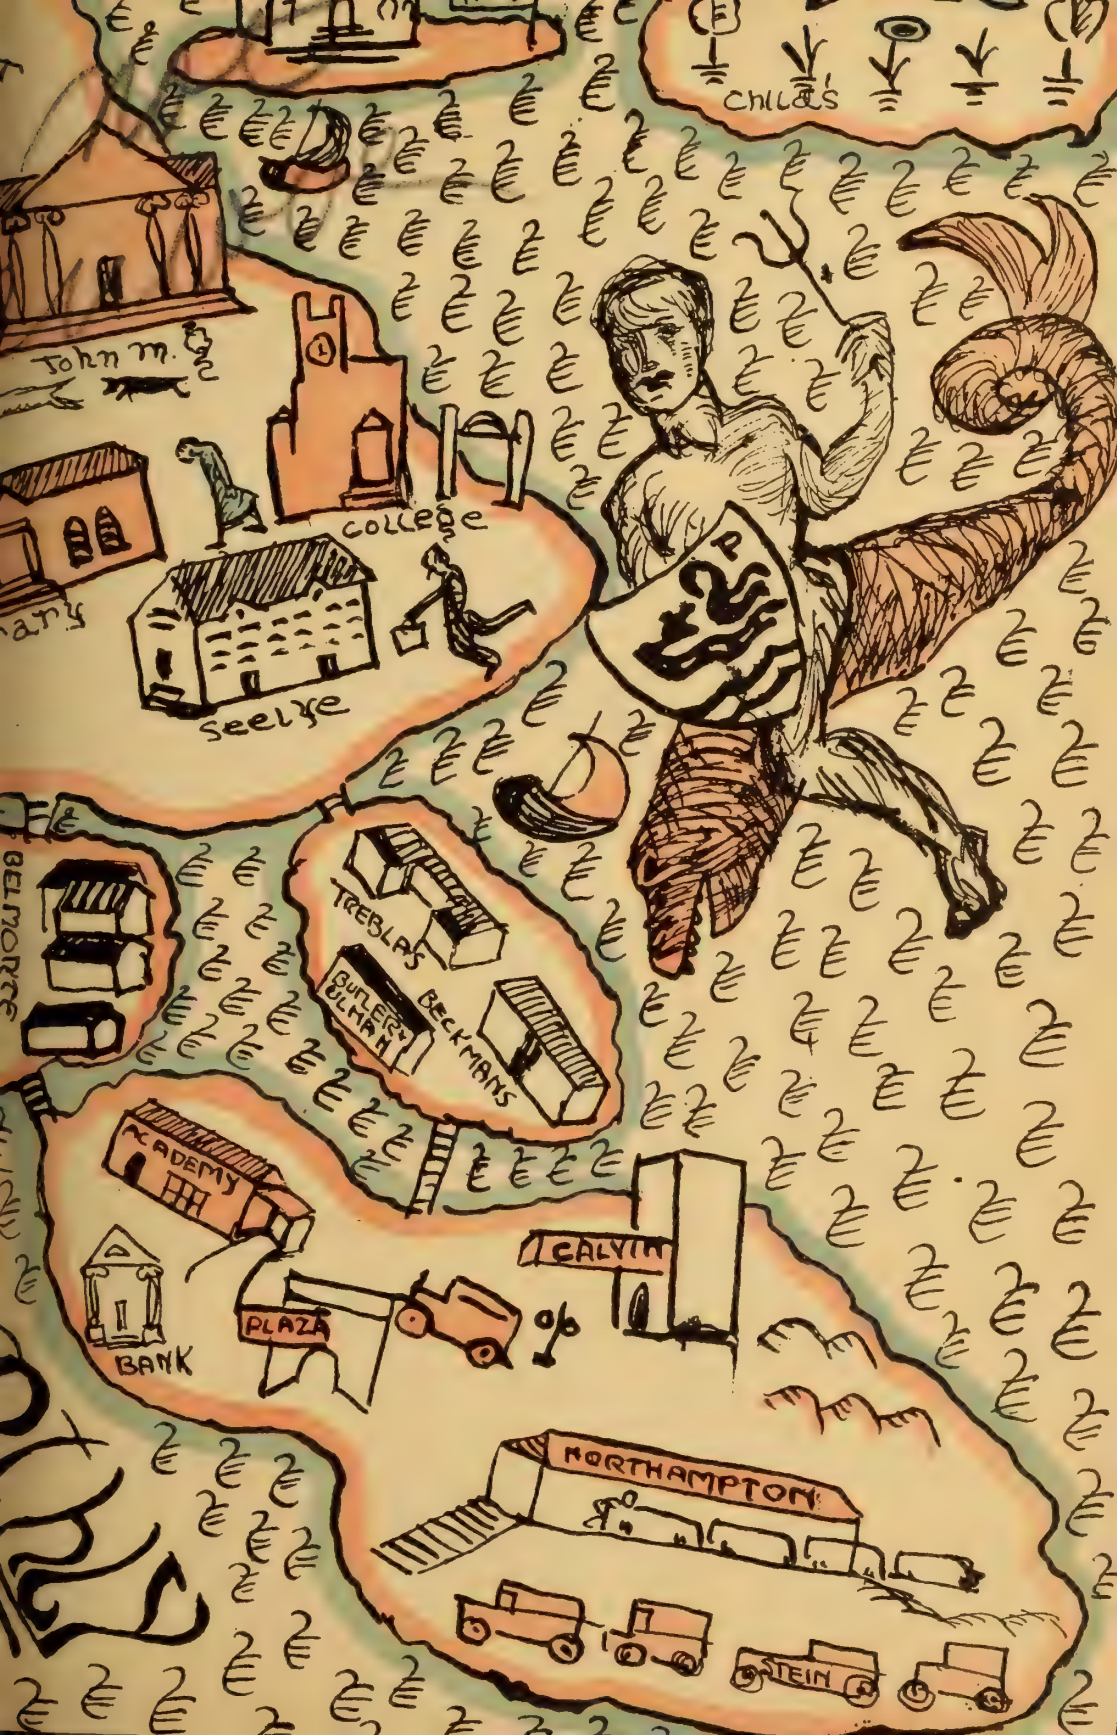 Child's
John M. G
College
rary
Seelye
P
BELMONTE
TREBLA'S
BUTLER &
ULMAN
BECKMANS
ACADEMY
BANK
PLAZA
CALVIN
NORTHAMPTON
STEIN